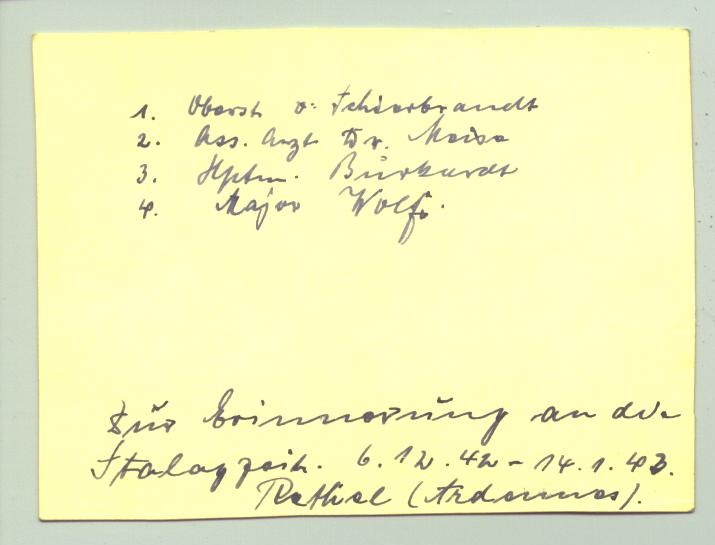 1. Oberst v. Schierbrandt
2. Ass. Arzt Dr. Meise
3. Hptm. Burkardt
4. Major Wolf.
Zur Erinnerung an die
Stalagzeit. 6.12.42 - 14.1.43.
Rethel (Ardennes).